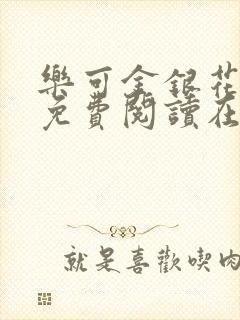 樂可金銀花
免費閱讀在
就是喜歡喫肉